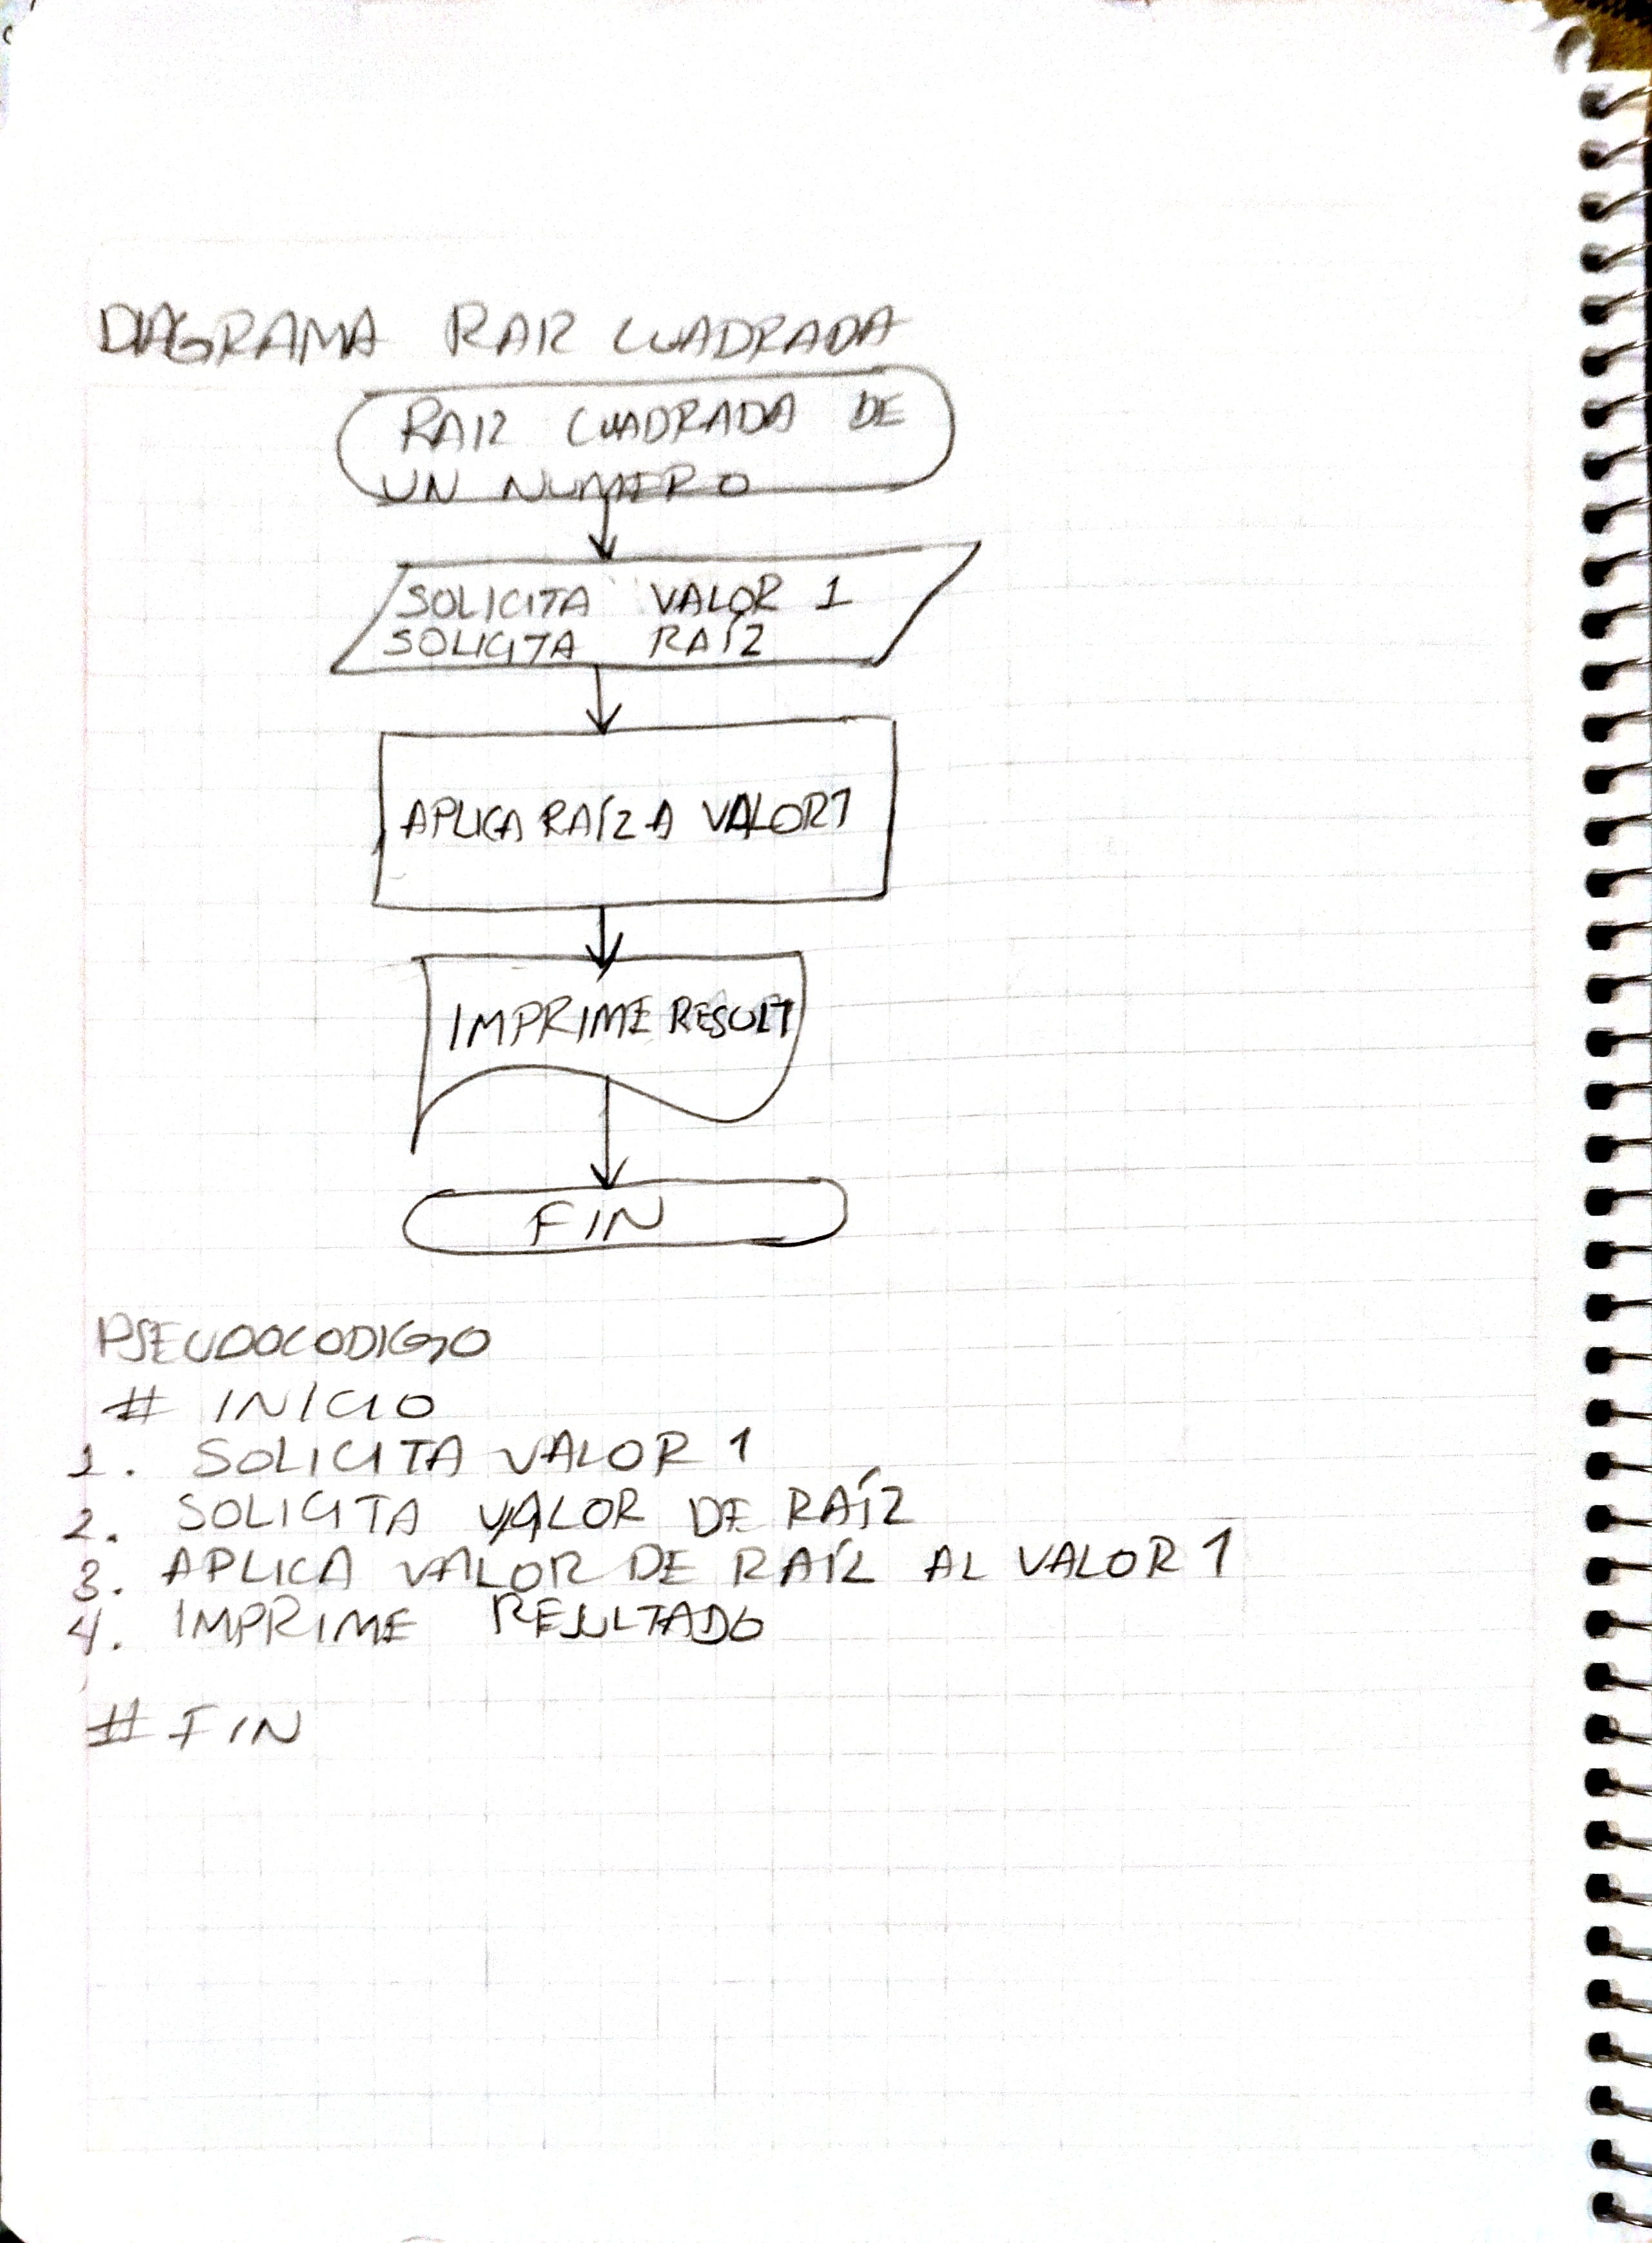 DIAGRAMA RAIZ CUADRADA
RAIZ CUADRADA DE
UN NUMERO
SOLICITA VALOR 1
SOLICITA RAÍZ
APLICA RAÍZ A VALOR 1
IMPRIME RESULT
FIN
PSEUDOCODIGO
# INICIO
1. SOLICITA VALOR 1
2. SOLICITA VALOR DE RAÍZ
3. APLICA VALOR DE RAÍZ AL VALOR 1
4. IMPRIME RESULTADO
# FIN